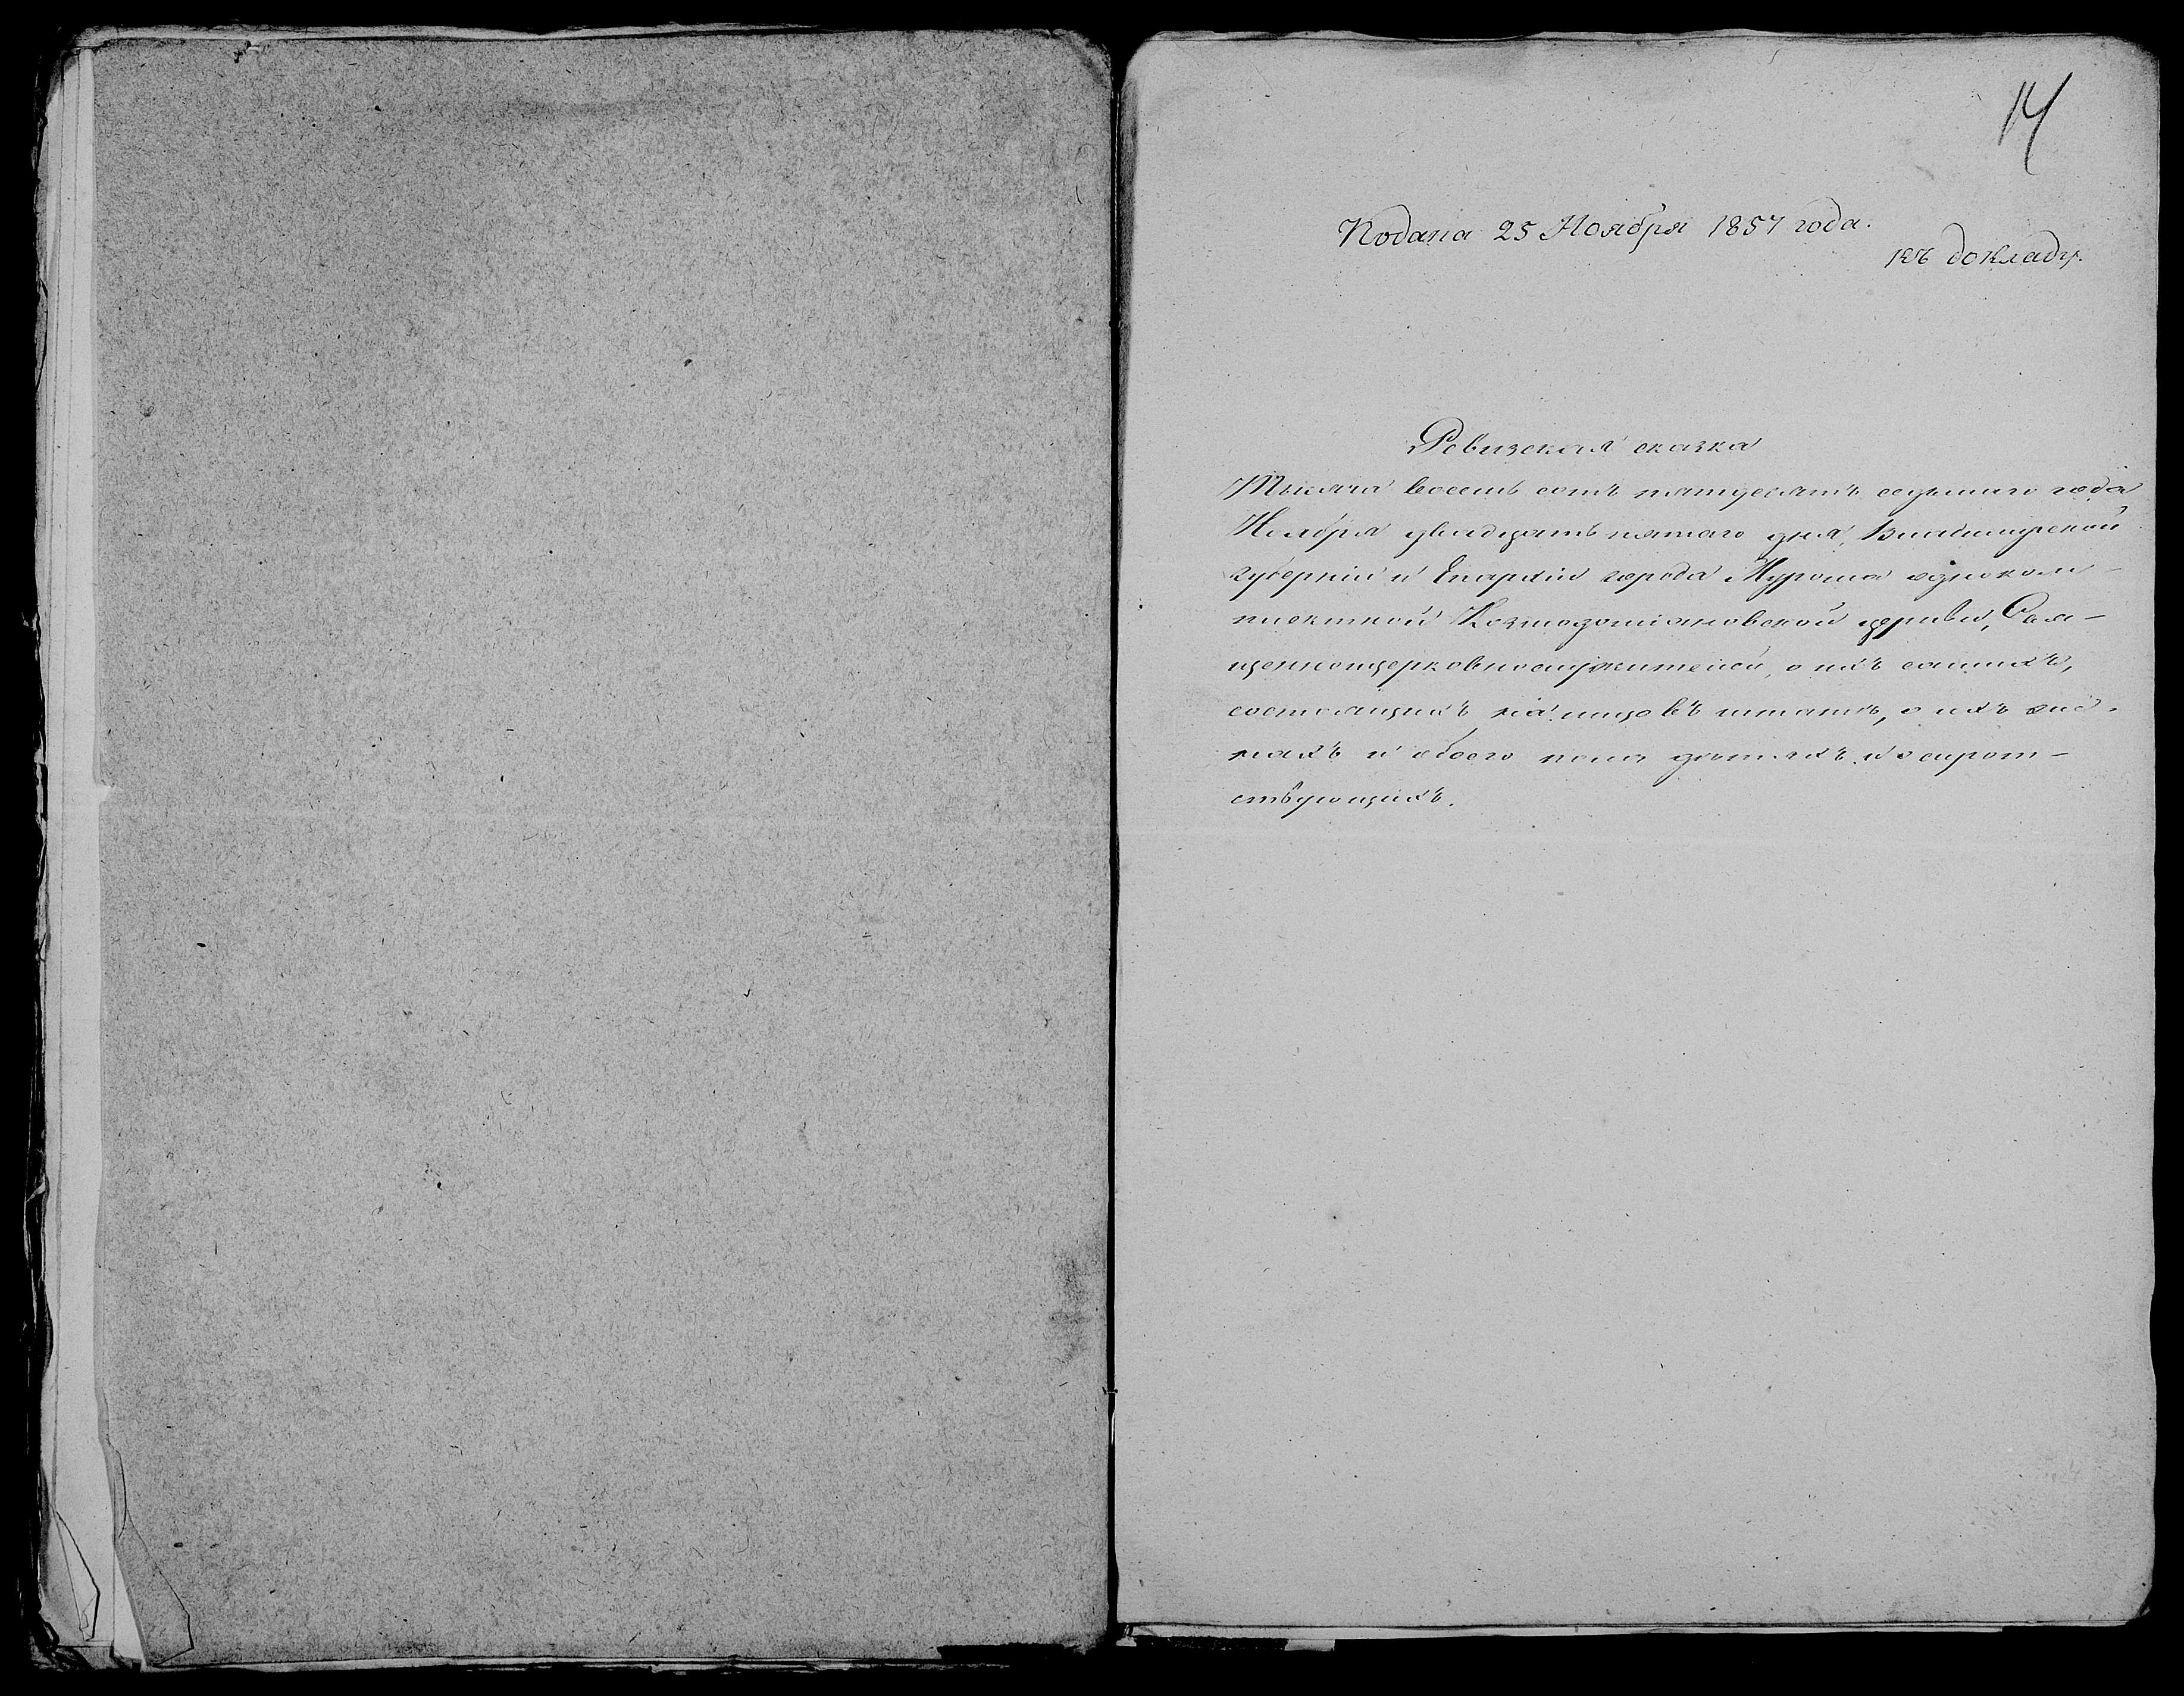 14
Подана 25 Ноября 1857 года.
къ докладу.
Ревизская сказка
Тысяча восемь сотъ пятьдесятъ седьмаго года
Ноября двадцать пятаго дня, Владимирской
губернии и Епархіи города Мурома одноком-
плектной Козмодоміановской церкви, Свя-
щенноцерковнослужителей, о нихъ самихъ,
состоящихъ на лицо въ штатѣ, о ихъ же-
нахъ и обоего пола дѣтяхъ и о сирот-
ствующихъ.